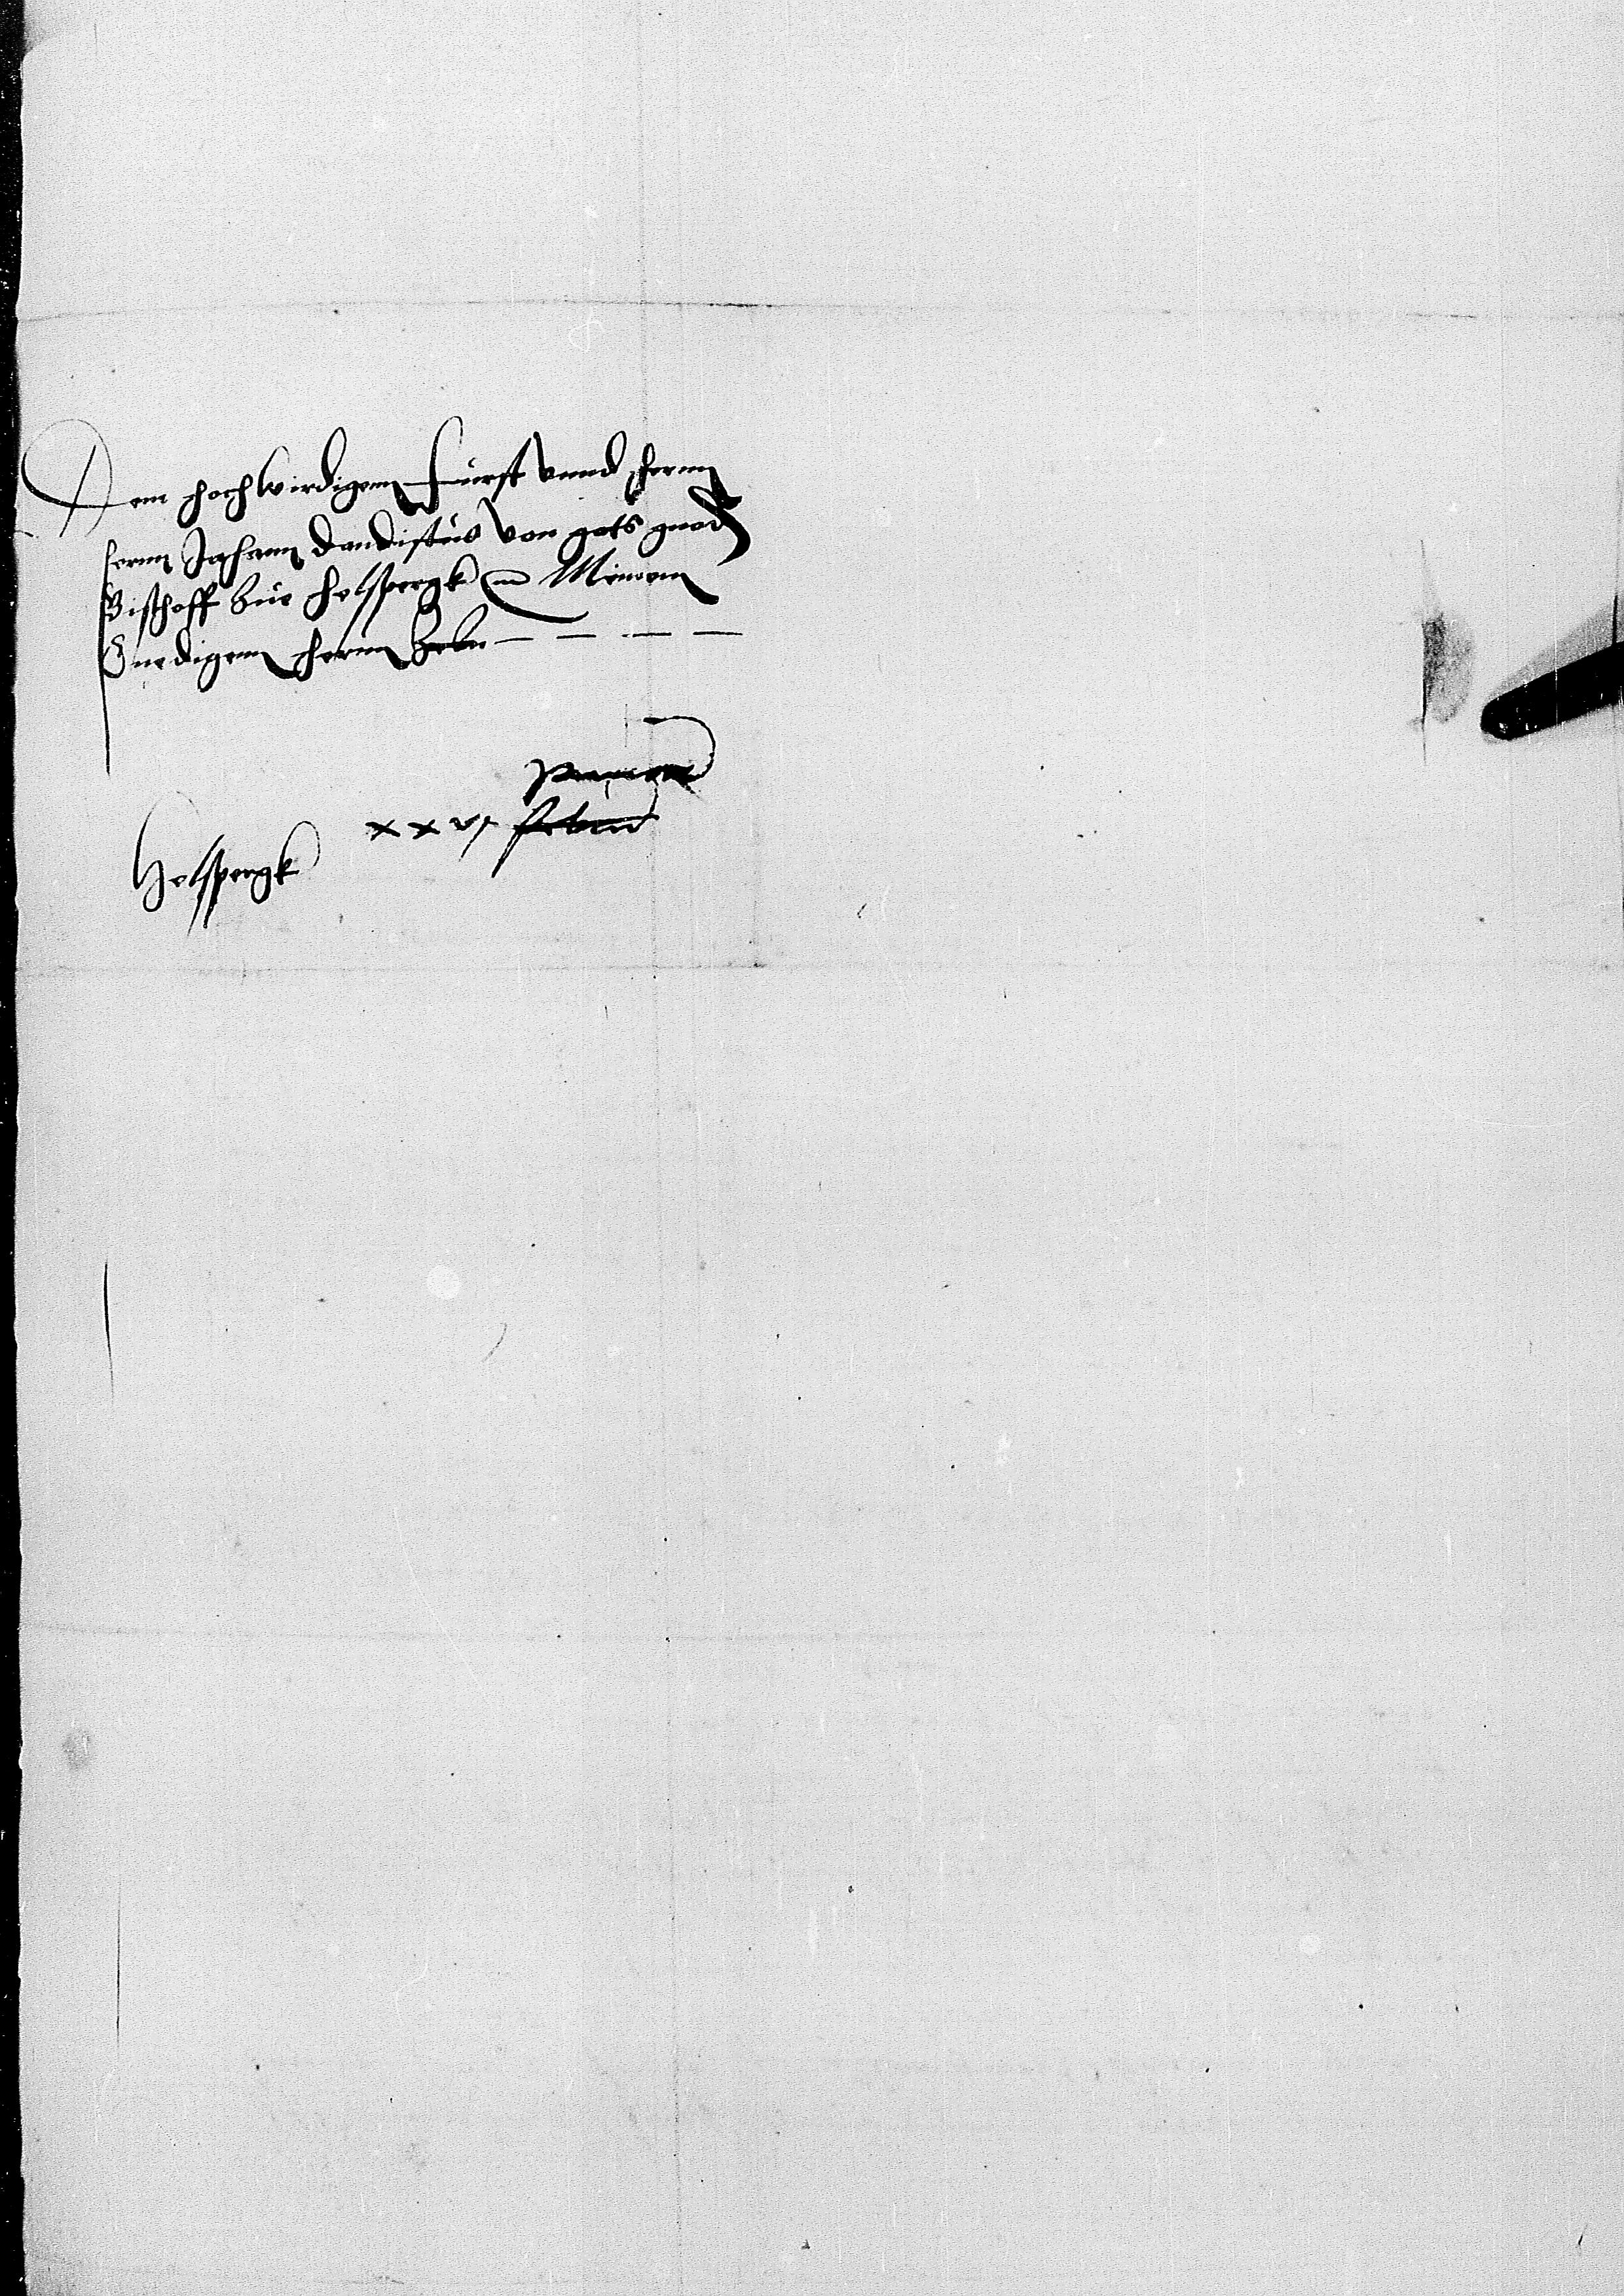 Dem hochwirdigenn Fürst vnnd hernn
hernn Johann dandiscus von gots gnad
Bischoff bue helspergk Meinem
Gnedigenn hernn
xxvi
Helspergk